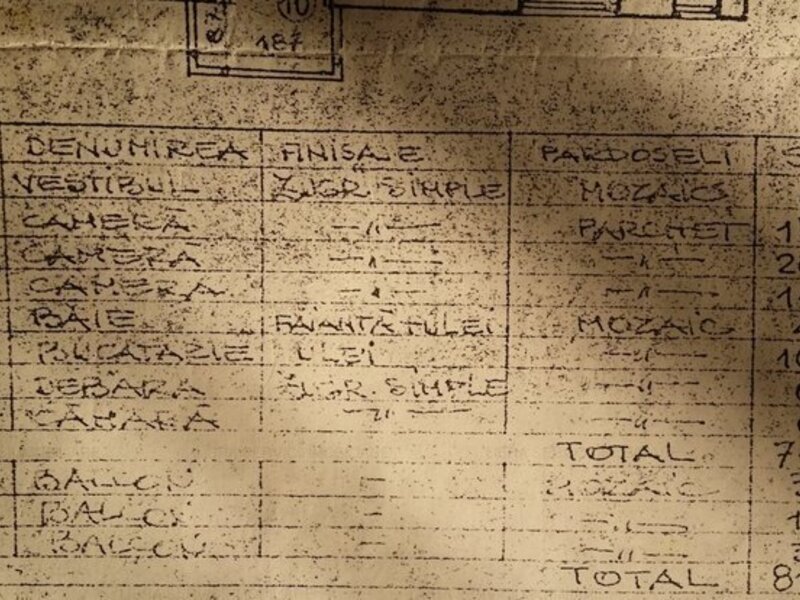 10
87
187
DENUMIREA FINISAJE PARDOSELI S
VESTIBUL ZUGR. SIMPLE MOZAICS
CAMERĂ —〃— PARCHET 1
CAMERĂ —〃— —〃— 2
CAMERĂ —〃— —〃— 1
BAIE FAIANȚĂ+ULEI MOZAIC
BUCATARIE ULEI —〃— 10
DEBARA ZUGR. SIMPLE —〃—
CĂMARĂ —〃— —〃—
TOTAL 7
BALCON — MOZAIC 3
BALCON — —〃— 1
BALCON — —〃— 3
TOTAL 8